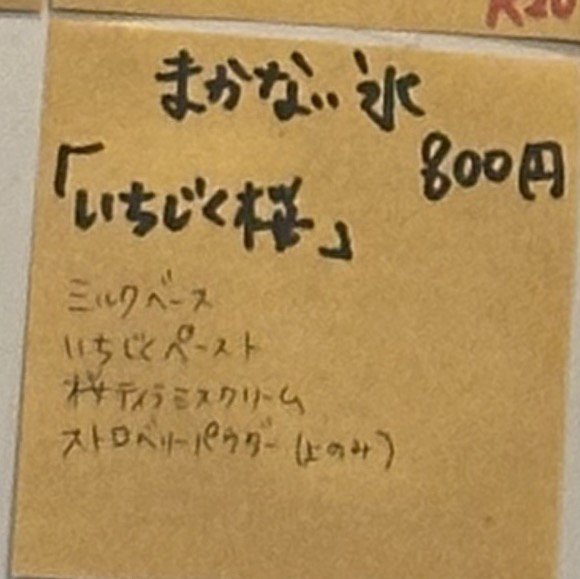 まかない氷
800円
「いちじく桜」
ミルクベース
いちじくペースト
桜ティラミスクリーム
ストロベリーパウダー(上のみ)